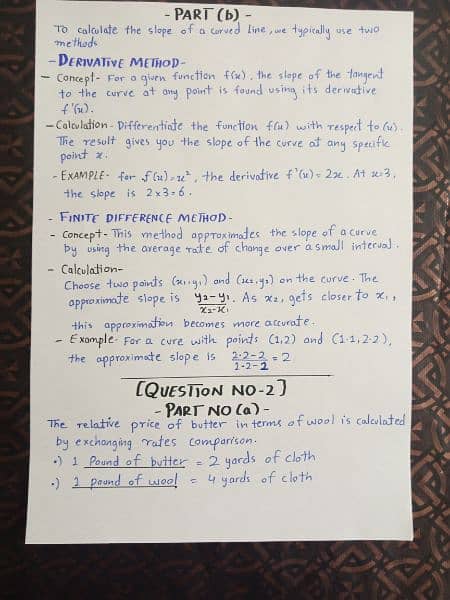 - PART (b) -
To calculate the slope of a curved line, we typically use two
methods
- DERIVATIVE METHOD -
- Concept - For a given function f(x), the slope of the tangent
to the curve at any point is found using its derivative
f'(x).
- Calculation - Differentiate the function f(x) with respect to (x).
The result gives you the slope of the curve at any specific
point x.
- EXAMPLE - for f(x) = x², the derivative f'(x) = 2x. At x=3,
the slope is 2x3=6.
- FINITE DIFFERENCE METHOD -
- Concept - This method approximates the slope of a curve
by using the average rate of change over a small interval.
- Calculation -
Choose two points (x₁,y₁) and (x₂,y₂) on the curve. The
approximate slope is y₂-y₁/x₂-x₁. As x₂, gets closer to x₁,
this approximation becomes more accurate.
- Example - For a cure with points (1,2) and (1.1,2.2),
the approximate slope is 2.2-2/1.2-2 = 2
[QUESTION NO-2]
- PART NO (a) -
The relative price of butter in terms of wool is calculated
by exchanging rates comparison.
•) 1 Pound of butter = 2 yards of cloth
•) 1 pound of wool = 4 yards of cloth